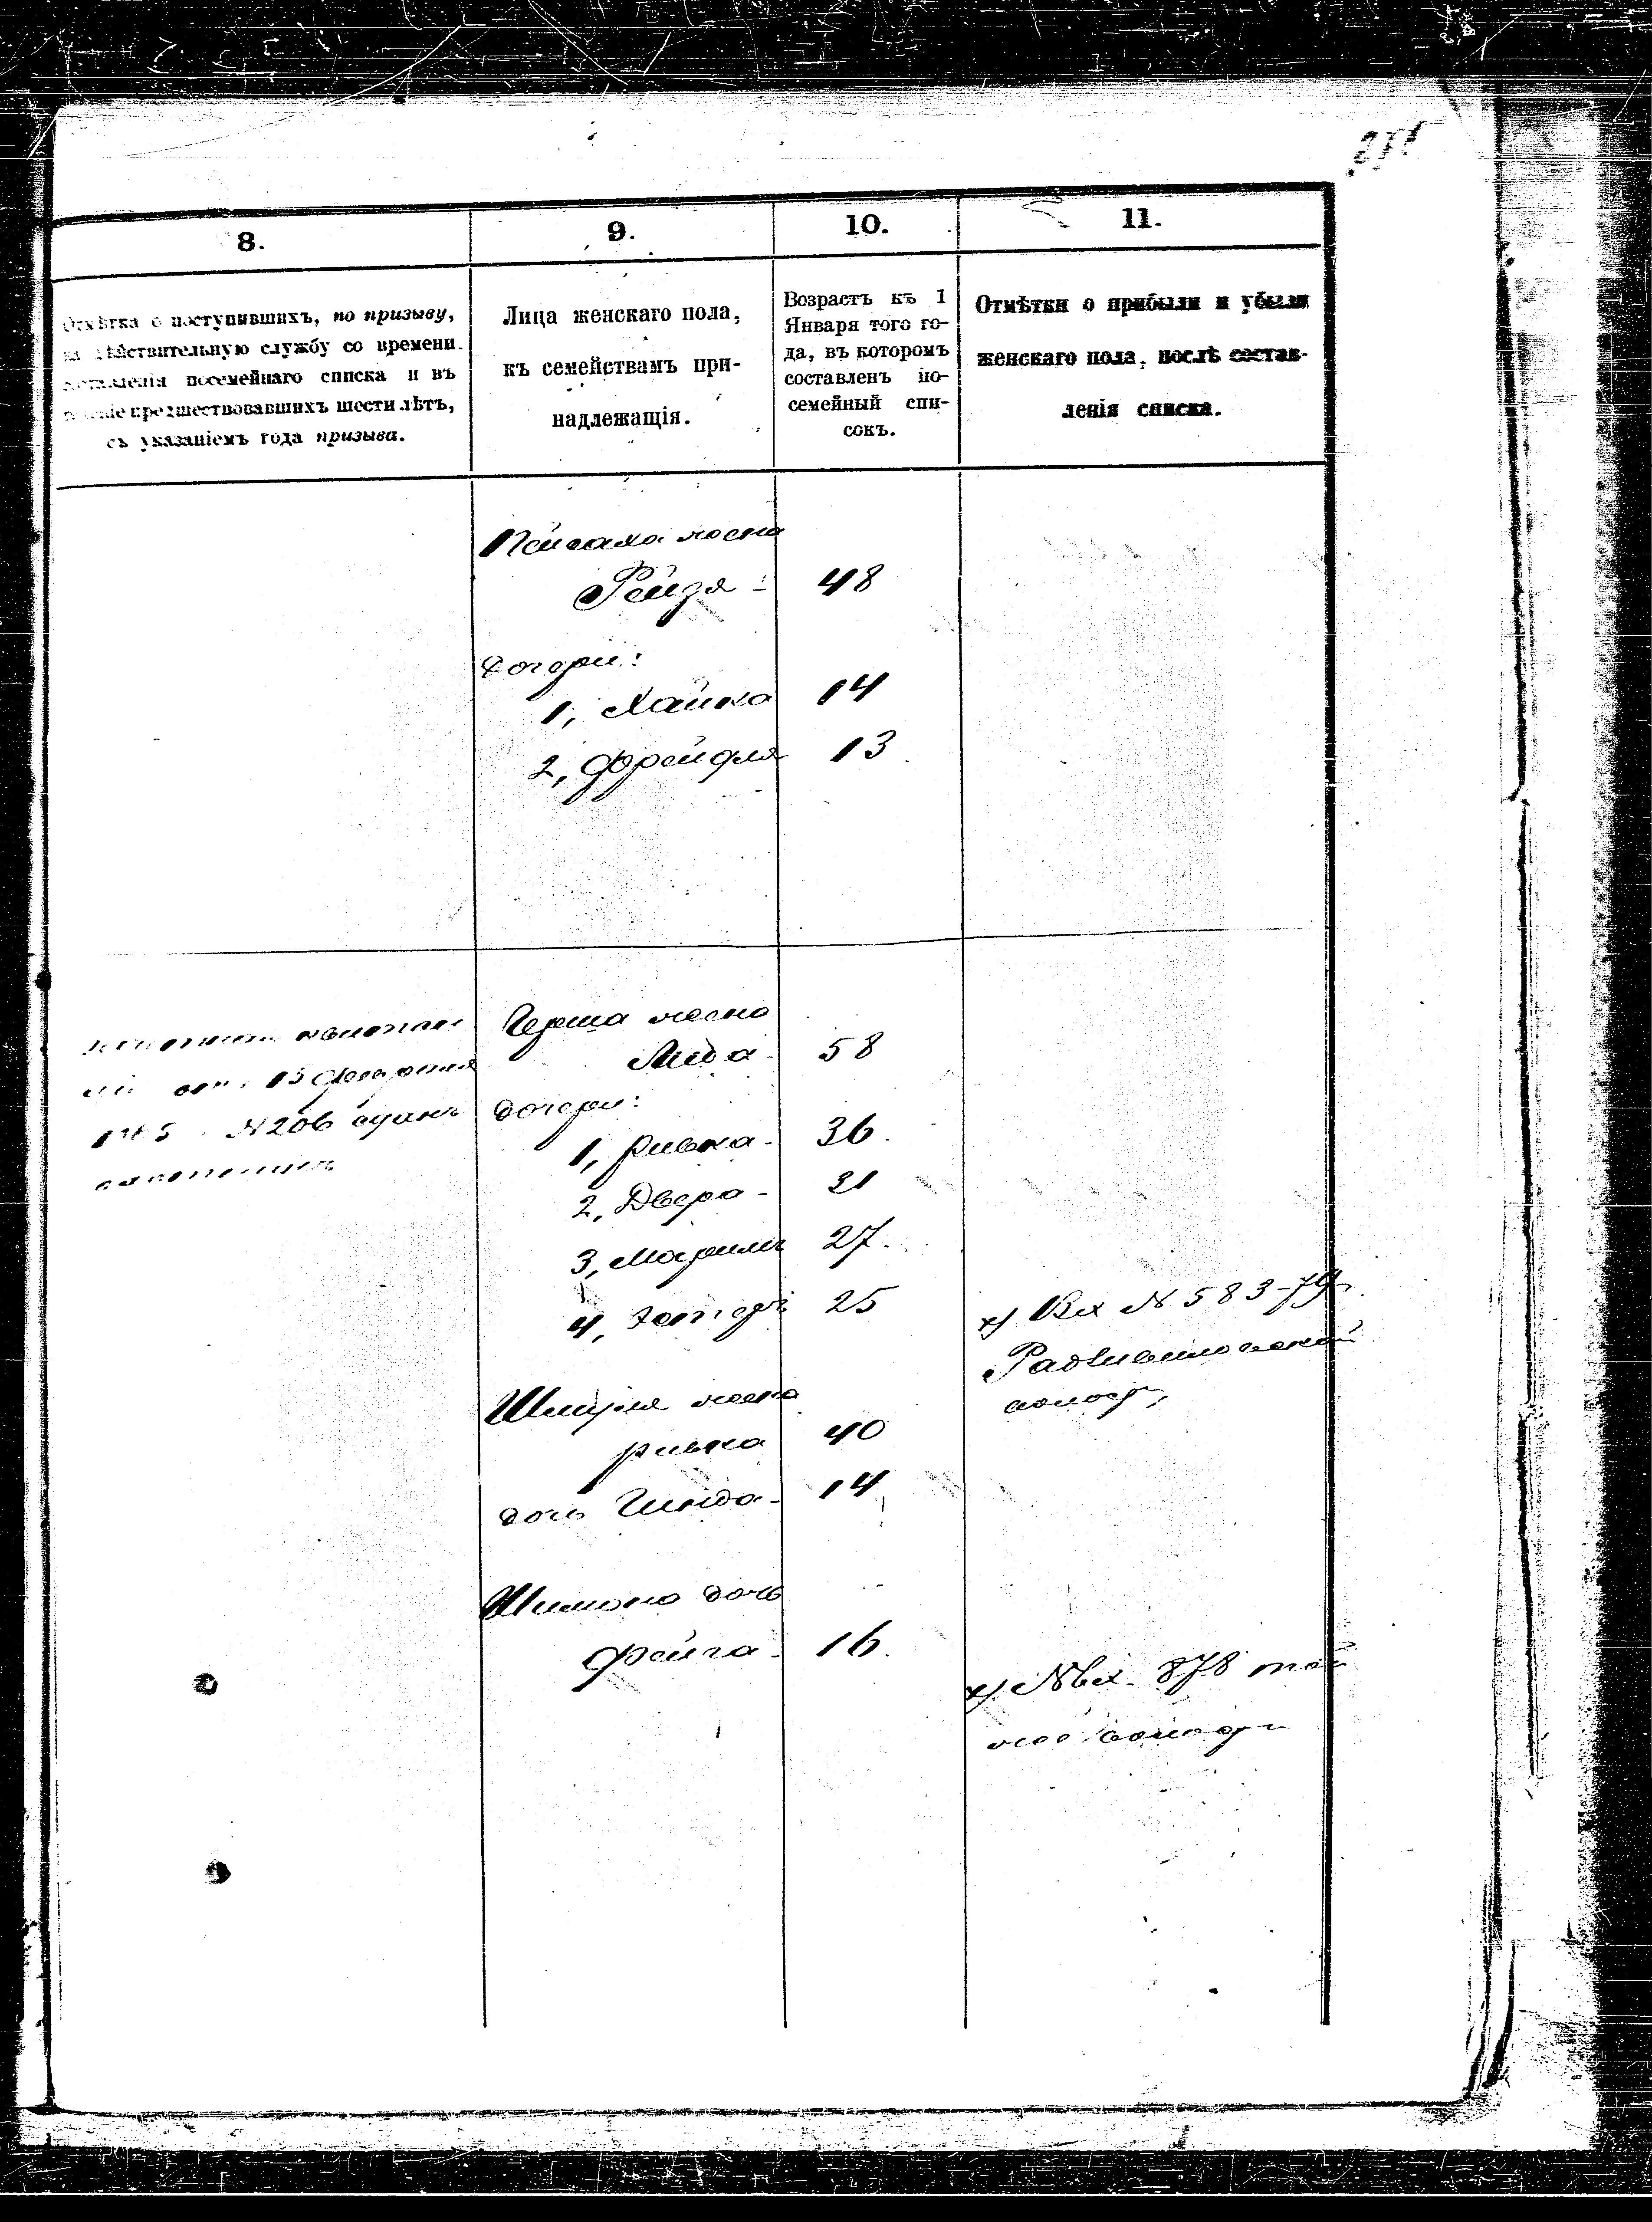 8.
9.
10.
11.
Отмѣтка о поступившихъ, по призыву,
на дѣйствительную службу со времени
составленія посемейнаго списка и въ
теченіе предшествовавшихъ шести лѣтъ,
съ указаніемъ года призыва.
Лица женскаго пола,
къ семействамъ при-
надлежащія.
Возрастъ къ 1
Января того го-
да, въ которомъ
составленъ по-
семейный спи-
сокъ.
Отмѣтки о прибыли и убыли
женскаго пола, послѣ состав-
ленія списка.
Пейсаха жена
Рейзя - 48
дочери:
1, Хайка 14
2, Фрейдля 13
Герша жена
Либа - 58
дочери:
1, Ривка - 36.
2, Двера - 31
3, Марьимъ 27.
4, Эстеръ 25
Шмуля жена
Ривка 40
дочь Гинда - 14
Шимона дочь
Фейга - 16.
15 февраля
№ 206
х) Вх № 583-79
х) № вх. 878 той